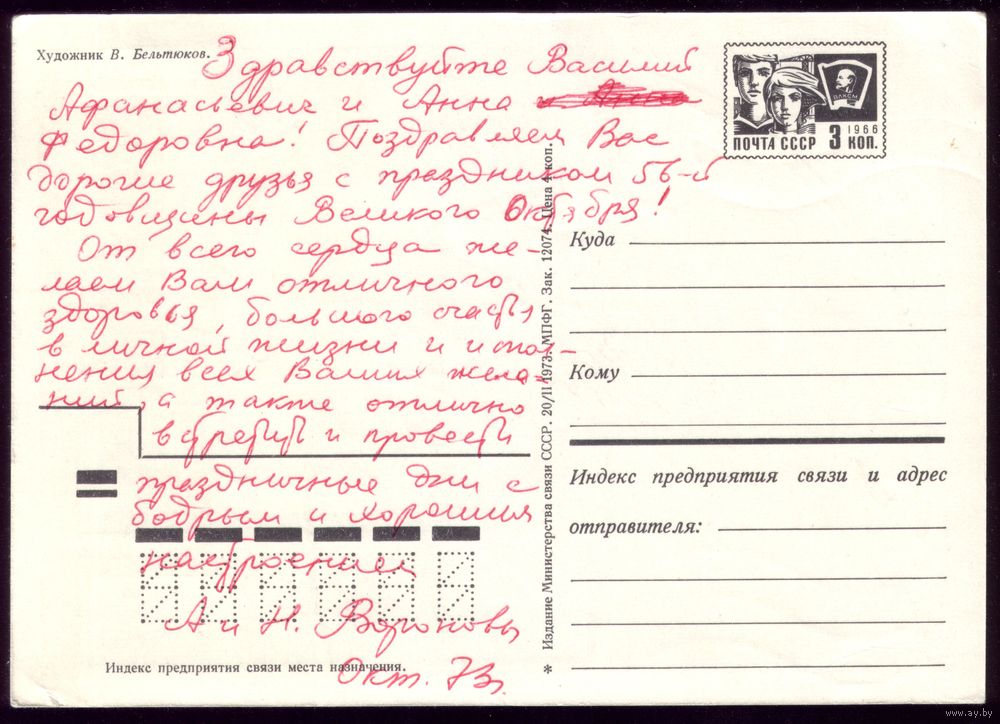 Художник В. Бельтюков.
Здравствуйте Василий
Афанасьевич и Анна
Федоровна! Поздравляем Вас
дорогие друзья с праздником 56-й
годовщины Великого Октября!
От всего сердца же-
лаем Вам отличного
здоровья, большого счастья
в личной жизни и испол-
нения всех Ваших жела-
ний, а также отлично
встретить и провести
праздничные дни с
бодрым и хорошим
настроением
А и Н. Вороновы
Окт. 73г.
Индекс предприятия связи места назначения.
* Издание Министерства связи СССР. 20/II 1973. МПФГ. Зак. 12074. Цена 4 коп.
ВЛКСМ
1966
ПОЧТА СССР 3 КОП.
Куда
Кому
Индекс предприятия связи и адрес
отправителя:
www.ay.by